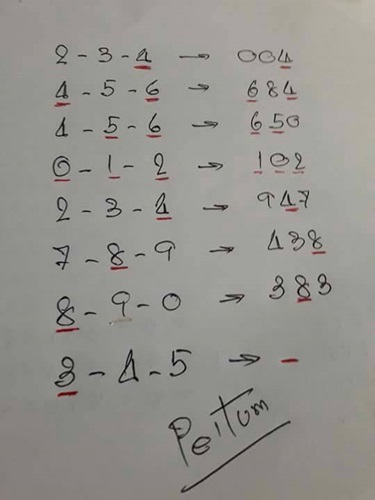 2 - 3 - 4 → 004
4 - 5 - 6 → 684
4 - 5 - 6 → 650
0 - 1 - 2 → 102
2 - 3 - 4 → 947
7 - 8 - 9 → 438
8 - 9 - 0 → 383
3 - 4 - 5 → -
Peitum